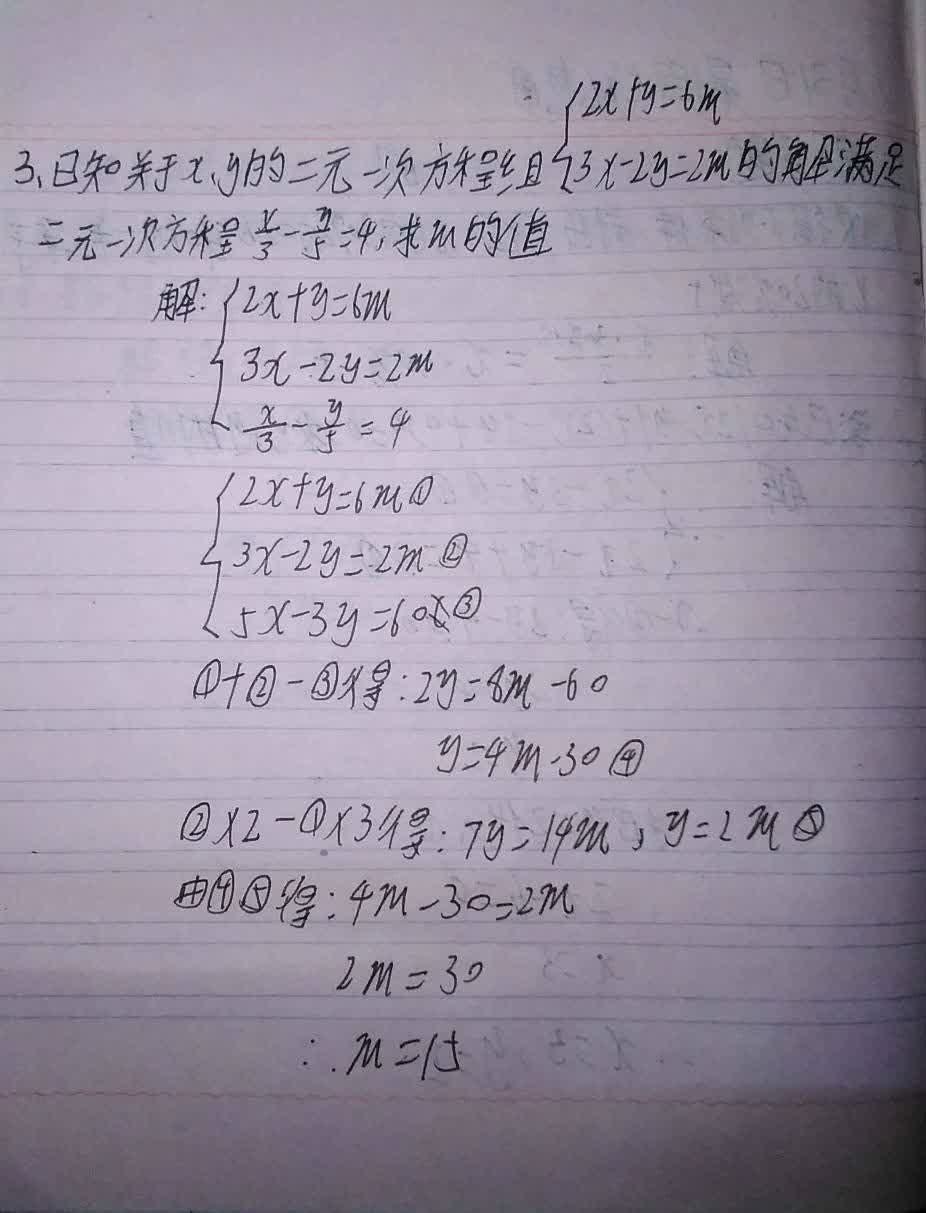 {2x+y=6m
3、已知关于x、y的二元一次方程组{3x-2y=2m的解满足
二元一次方程x/3-y/5=4,求m的值
解:{2x+y=6m
3x-2y=2m
x/3-y/5=4
{2x+y=6m①
3x-2y=2m②
5x-3y=60③
①+②-③得:2y=8m-60
y=4m-30④
②×2-①×3得:7y=14m,y=2m⑤
由④⑤得:4m-30=2m
2m=30
∴m=15